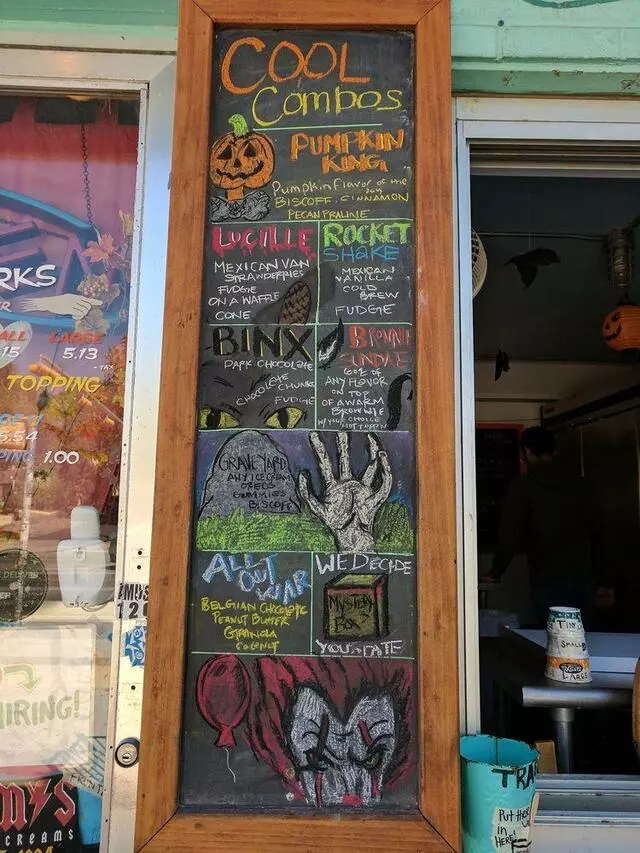 COOL
COMBOS
PUMPKIN
KING
Pumpkin flavor of the
day
BISCOFF. CINNAMON
PECAN PRALINE
LUCILLE
MEXICAN VAN
STRAWBERRIES
FUDGE
ON A WAFFLE
CONE
ROCKET
SHAKE
MEXICAN
VANILLA
COLD
BREW
FUDGE
BINX
DARK CHOCOLATE
CHOCOLATE CHUNKS
FUDGE
BROWNIE
SUNDAE
6OZ OF
ANY FLAVOR
ON TOP
OF A WARM
BROWNIE
W/ YOUR CHOICE
HOT TOPPIN
GRAVEYARD
ANY ICE CREAM
OREOS
GUMMIES
BISCOFF
ALL
OUT
WAR
BELGIAN CHOCOLATE
PEANUT BUTTER
GRANOLA
COCONUT
WE DECIDE
MYSTERY
BOX?
YOUR FATE
RKS
ER
ALL
LARGE
15
5.13
TAX
TOPPING
5.54
1.00
DELIVER
HIRING!
M'S
CREAMS
AMUS
TINY
SMALL
LARGE
TRA
PUT THEM
IN
HERE!